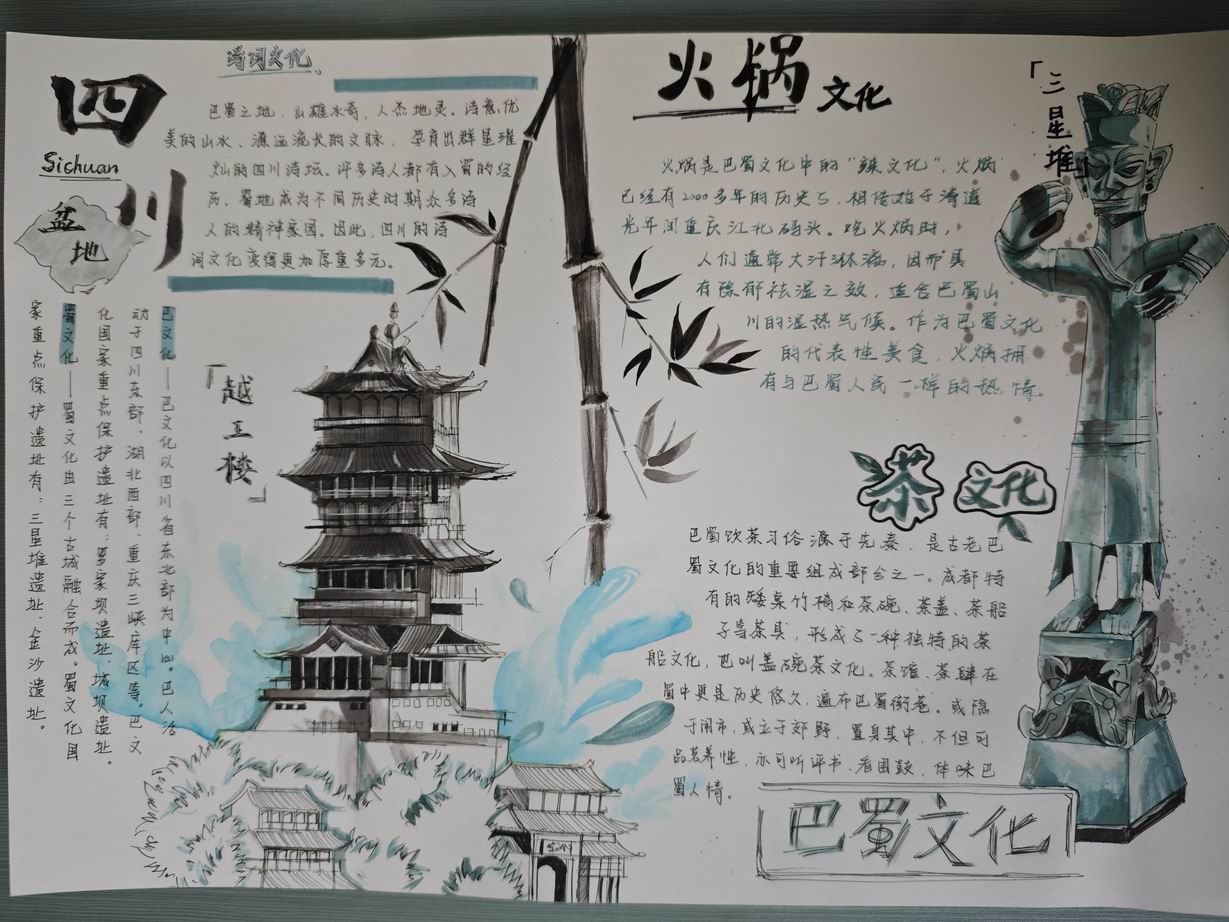 四川
Sichuan
盆地
诗词文化
巴蜀之地，山雄水奇，人杰地灵。诗意优
美的山水、源远流长的文脉，孕育出群星璀
灿的四川诗坛。许多诗人都有入蜀的经
历，蜀地成为不同历史时期众多诗
人的精神家园。因此，四川的诗
词文化变得更加厚重多元。
巴文化——巴文化以四川省东北部为中心。巴人活
动于四川东部、湖北西部、重庆三峡库区等。巴文
化国家重点保护遗址有：罗家坝遗址、城坝遗址。
蜀文化——蜀文化由三个古城融合而成。蜀文化国
家重点保护遗址有：三星堆遗址、金沙遗址。
「越王楼」
火锅文化
火锅是巴蜀文化中的“辣文化”，火锅
已经有2000多年的历史了，相传始于清道
光年间重庆江北码头。吃火锅时，
人们通常大汗淋漓，因而具
有除郁祛湿之效，适合巴蜀山
川的湿热气候。作为巴蜀文化
的代表性美食，火锅拥
有与巴蜀人民一样的热情。
「三星堆」
茶文化
巴蜀饮茶习俗源于先秦，是古老巴
蜀文化的重要组成部分之一。成都特
有的矮桌竹椅和茶碗、茶盖、茶船
子等茶具，形成了一种独特的茶
船文化，也叫盖碗茶文化。茶馆、茶肆在
蜀中更是历史悠久，遍布巴蜀街巷。或隐
于闹市，或立于郊野，置身其中，不但可
品茗养性，亦可听评书、看围鼓，体味巴
蜀人情。
巴蜀文化